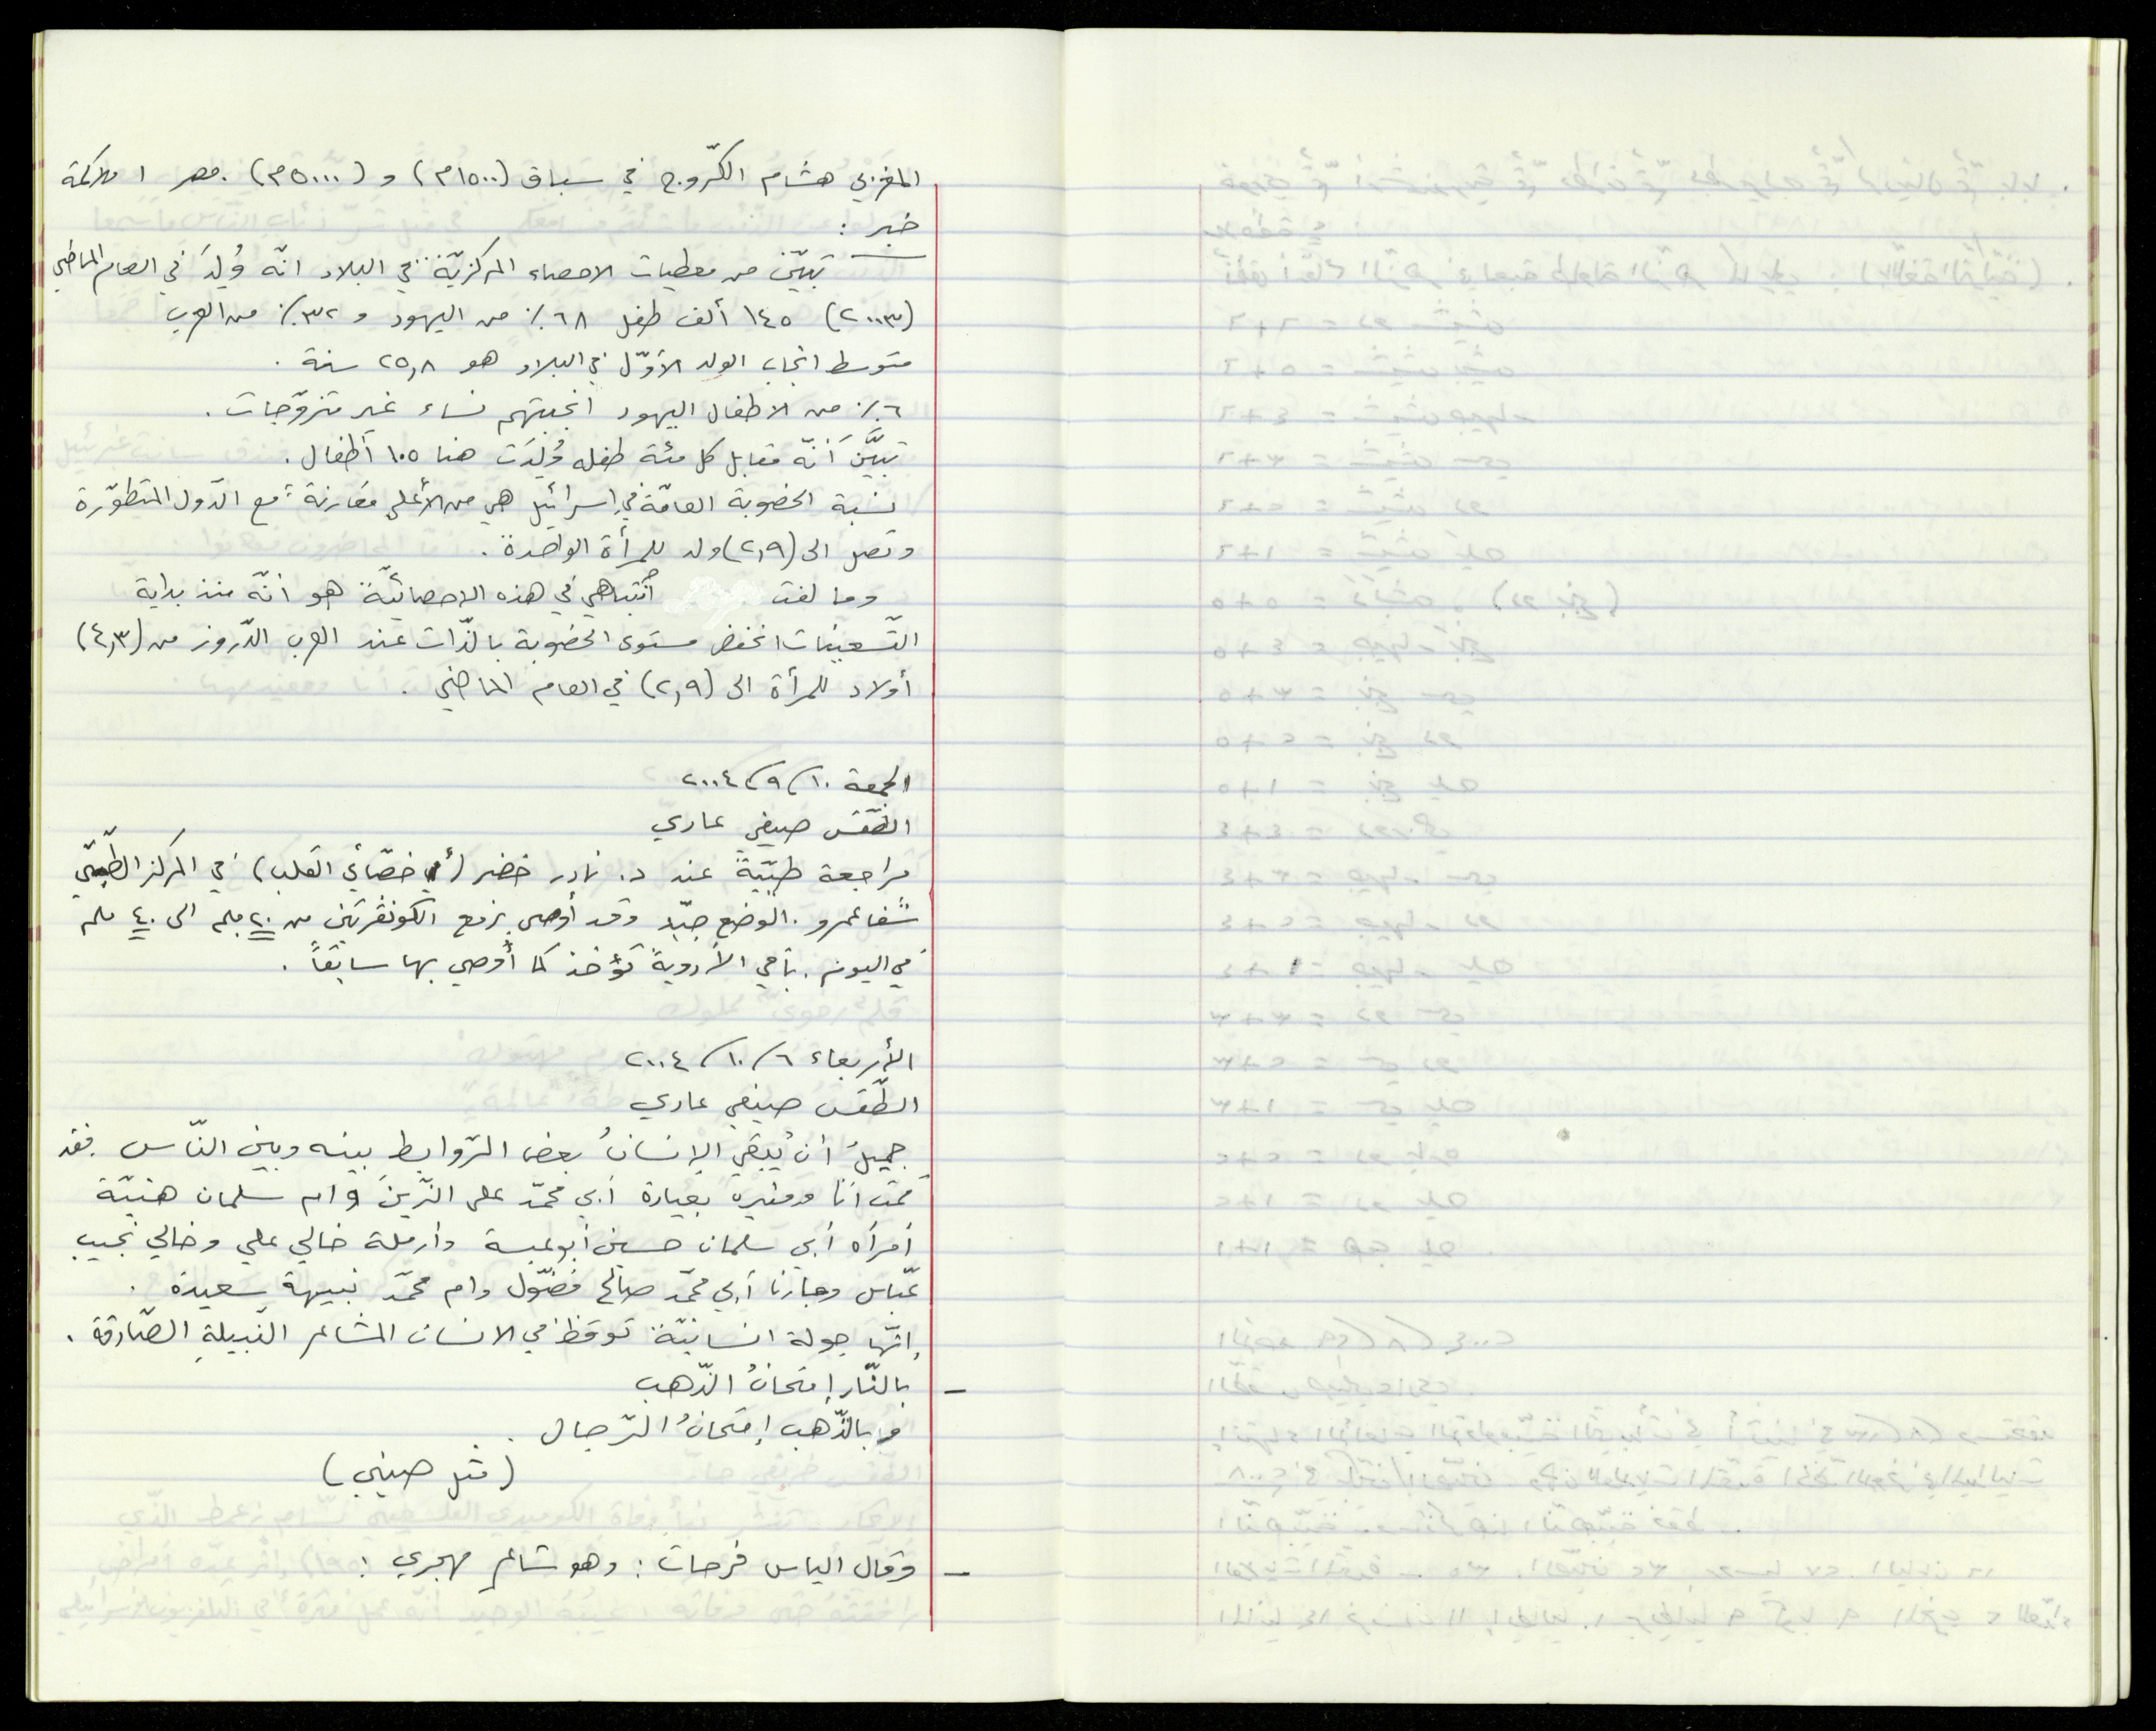 المغربي هشام الكرّوج في سباق (١٥٠٠م) و (٥٠٠٠م). مصر ١ ملاكمة
خبر :
تبيّن من معطيات الاحصاء المركزيّة في البلاد انّه وُلِدَ في العام الماضي
(٢٠٠٣) ١٤٥ ألف طفل ٦٨٪ من اليهود و ٣٢٪ من العرب
متوسط انجاب الولد الأوّل في البلاد هو ٢٥,٨ سنة .
٦٪ من الاطفال اليهود انجبتهم نساء غير متزوّجات .
تبيَّنَ أنّه مقابل كل مئة طفله وُلِدَت هنا ١٠٥ أطفال .
نسبة الخصوبة العامّة في اسرائيل هي من الأعلى مقارنة مع الدّول المتطوّرة
وتصل الى (٢,٩) ولد للمرأة الواحدة .
وما لفت انتباهي في هذه الاحصائيّة هو انّه منذ بداية
التّسعينات انخفض مستوى الخصوبة بالذّات عند العرب الدّروز من (٤,٣)
أولاد للمرأة الى (٢,٩) في العام الماضي .
الجمعة ١٠/٩/٢٠٠٤
الطّقس صيفي عاديّ
مراجعة طبّيّة عند د. نادر خضر (أخصّائي القلب) في المركز الطّبّي
شفاعمرو . الوضع جيّد وقد أوصى برفع الكونڤرتين من ٢٠ ملم الى ٤٠ ملم
في اليوم . باقي الأدوية تؤخذ كما أُوصي بها سابقاً .
الأربعاء ٦/١٠/٢٠٠٤
الطّقس صيفي عادي
جميلٌ أن يُبقي الإنسانُ بعض الرّوابط بينه وبين النّاس فقد
قمت أنا ومنيره بعيادة أبي محمّد علي الزّين وام سلمان هنيّة
امرأه أبي سلمان حسين أبو عبسة وأرملة خالي علي وخالي نجيب
عبّاس وجارنا أبي محمّد صالح فضّول وام محمّد نبيهة سعيدة .
إنّها جولة انسانيّة توقظ في الانسان المشاعر النّبيلةِ الصّادقة .
- بالنّار إمتحانُ الذّهب
وبالذّهب إمتحانُ الرّجال .
(مثل صيني)
- وقال الياس فرحات : وهو شاعر مهجري :